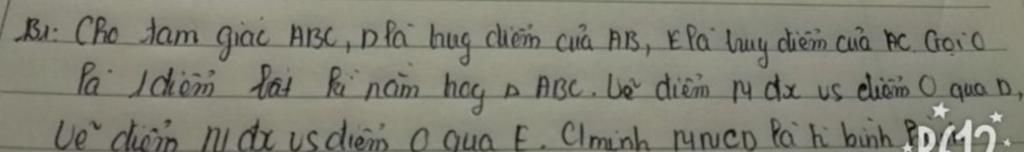 B1: Cho tam giác ABC, D là trug điểm của AB, E là trug điểm của AC. Gọi O
là 1 điểm bất kì nằm trog Δ ABC. Vẽ điểm M đx vs điểm O qua D,
Vẽ điểm N đx vs điểm O qua E. C/minh MNCB là h bình